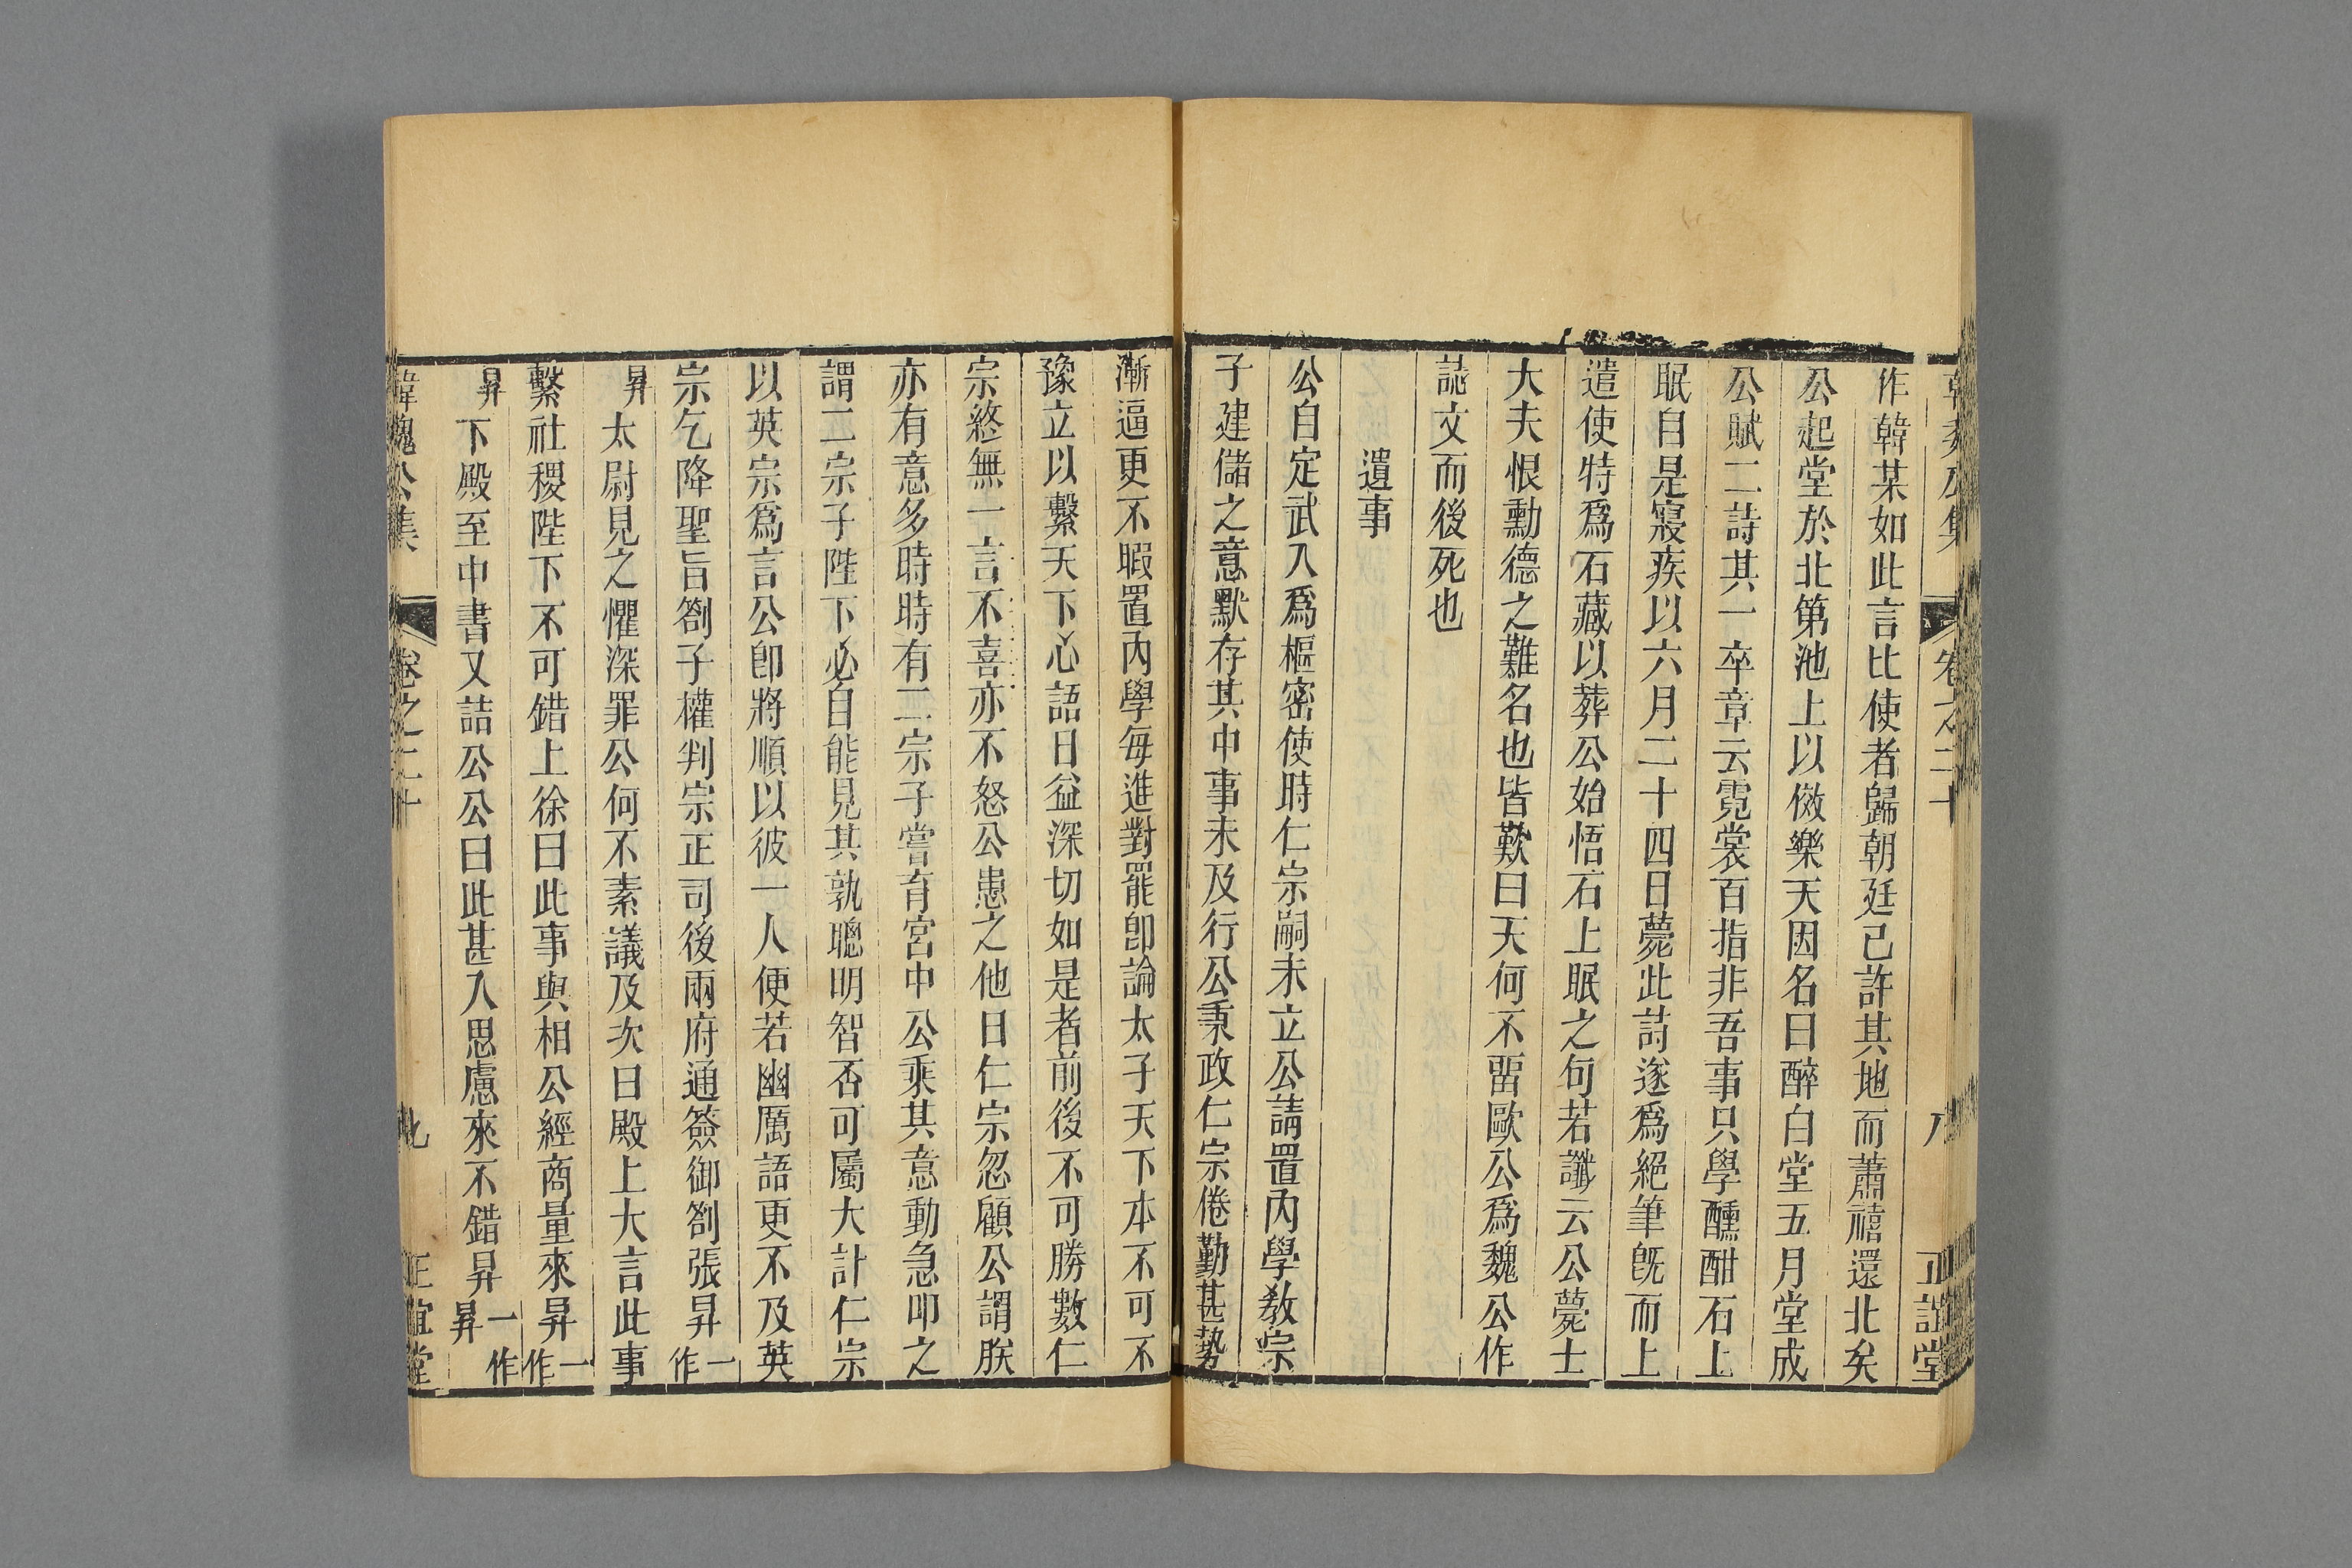 韓魏公集 卷之二十 八 正誼堂
作韓某如此言比使者歸朝廷已許其地而蕭禧還北矣
公起堂於北第池上以倣樂天因名曰醉白堂五月堂成
公賦二詩其一卒章云霓裳百指非吾事只學醺酣石上
眠自是寢疾以六月二十四日薨此詩遂爲絕筆旣而上
遣使特爲石藏以葬公始悟石上眠之句若讖云公薨士
大夫恨勳德之難名也皆歎曰天何不畱歐公爲魏公作
誌文而後死也
遺事
公自定武入爲樞密使時仁宗嗣未立公請置內學教宗
子建儲之意默存其中事未及行公秉政仁宗倦勤甚勢
漸逼更不暇置內學每進對罷卽論太子天下本不可不
豫立以繫天下心語日益深切如是者前後不可勝數仁
宗終無一言不喜亦不怒公患之他日仁宗忽顧公謂朕
亦有意多時時有二宗子嘗育宮中公乘其意動急叩之
謂二宗子陛下必自能見其孰聰明智否可屬大計仁宗
以英宗爲言公卽將順以彼一人便若幽厲語更不及英
宗乞降聖旨劄子權判宗正司後兩府通簽御劄張昇一作
昪太尉見之懼深罪公何不素議及次日殿上大言此事
繫社稷陛下不可錯上徐曰此事與相公經商量來昇一作
昪下殿至中書又詰公公曰此甚入思慮來不錯昇一作昪
韓魏公集 卷之二十 九 正誼堂